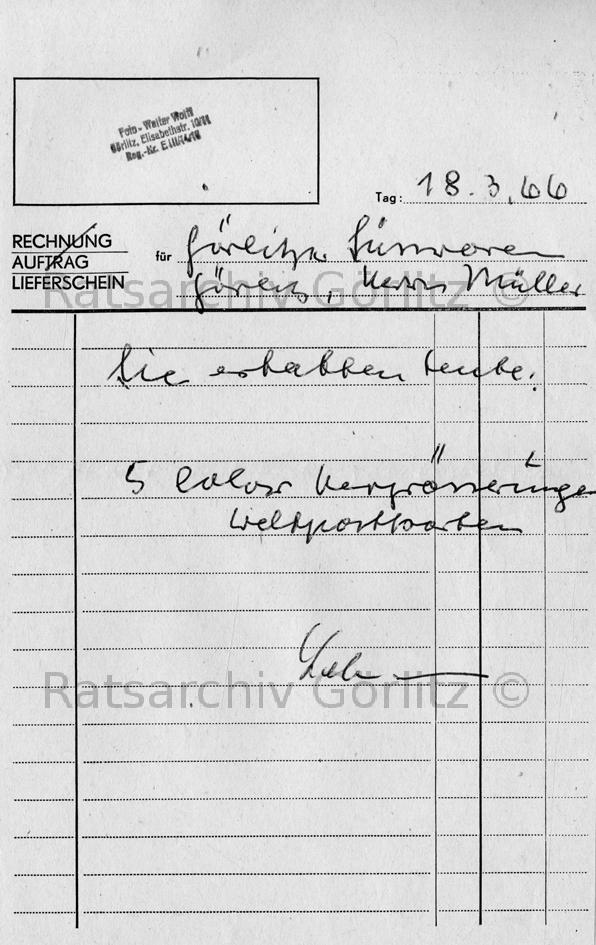 Foto - Walter Wolff
Görlitz, Elisabethstr. 10/11
Reg.-Nr. E III/14/18
Tag: 18.3.66
RECHNUNG
AUFTRAG
LIEFERSCHEIN
für Görlitzer Süsswaren
Görlitz, Herrn Müller
Ratsarchiv Görlitz ©
Sie erhalten heute:
5 Color Vergrösserungen
Weltpostkarten
Ratsarchiv Görlitz ©